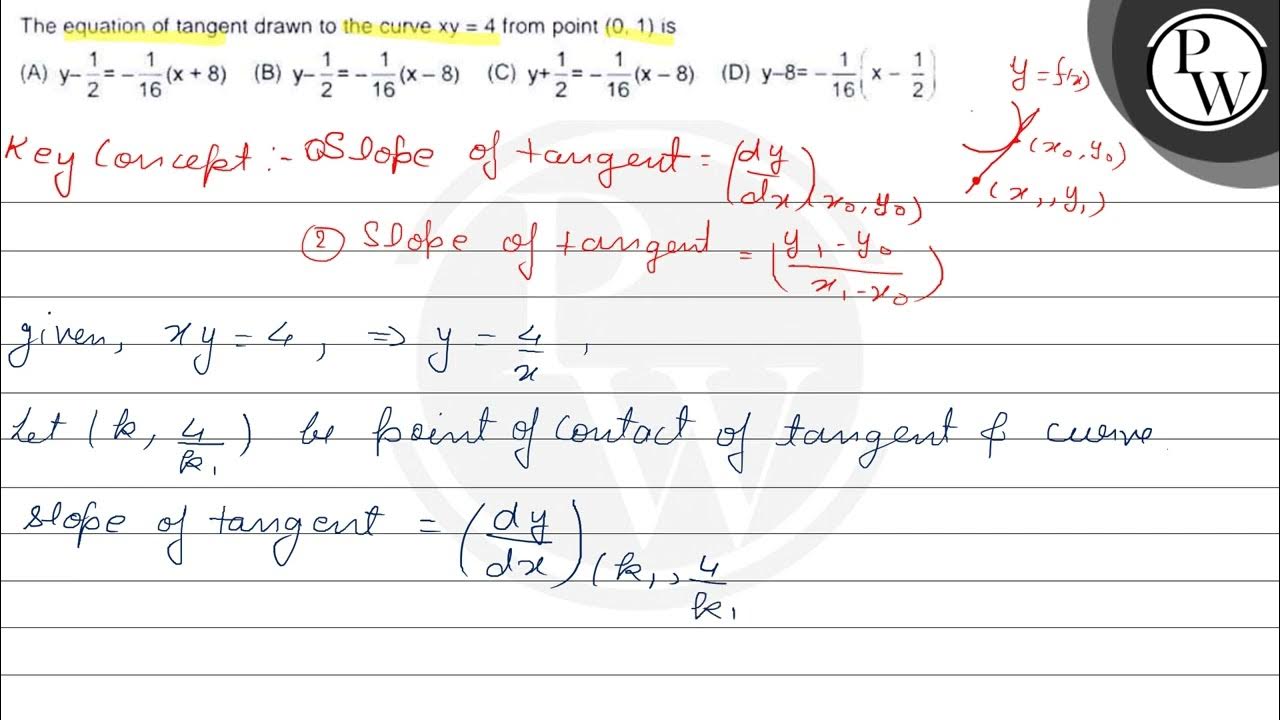 The equation of tangent drawn to the curve xy = 4 from point (0, 1) is
(A) y-1/2=-1/16(x + 8) (B) y-1/2=-1/16(x - 8) (C) y+1/2=-1/16(x - 8) (D) y-8=-1/16(x - 1/2)
PW
y = f(x)
(x₀, y₀)
(x₁, y₁)
Key Concept :- ① Slope of tangent = (dy/dx)(x₀, y₀)
② Slope of tangent = (y₁-y₀/x₁-x₀)
given, xy = 4, ⇒ y = 4/x,
Let (k, 4/k₁) be point of contact of tangent & curve.
slope of tangent = (dy/dx)(k₁, 4/k₁